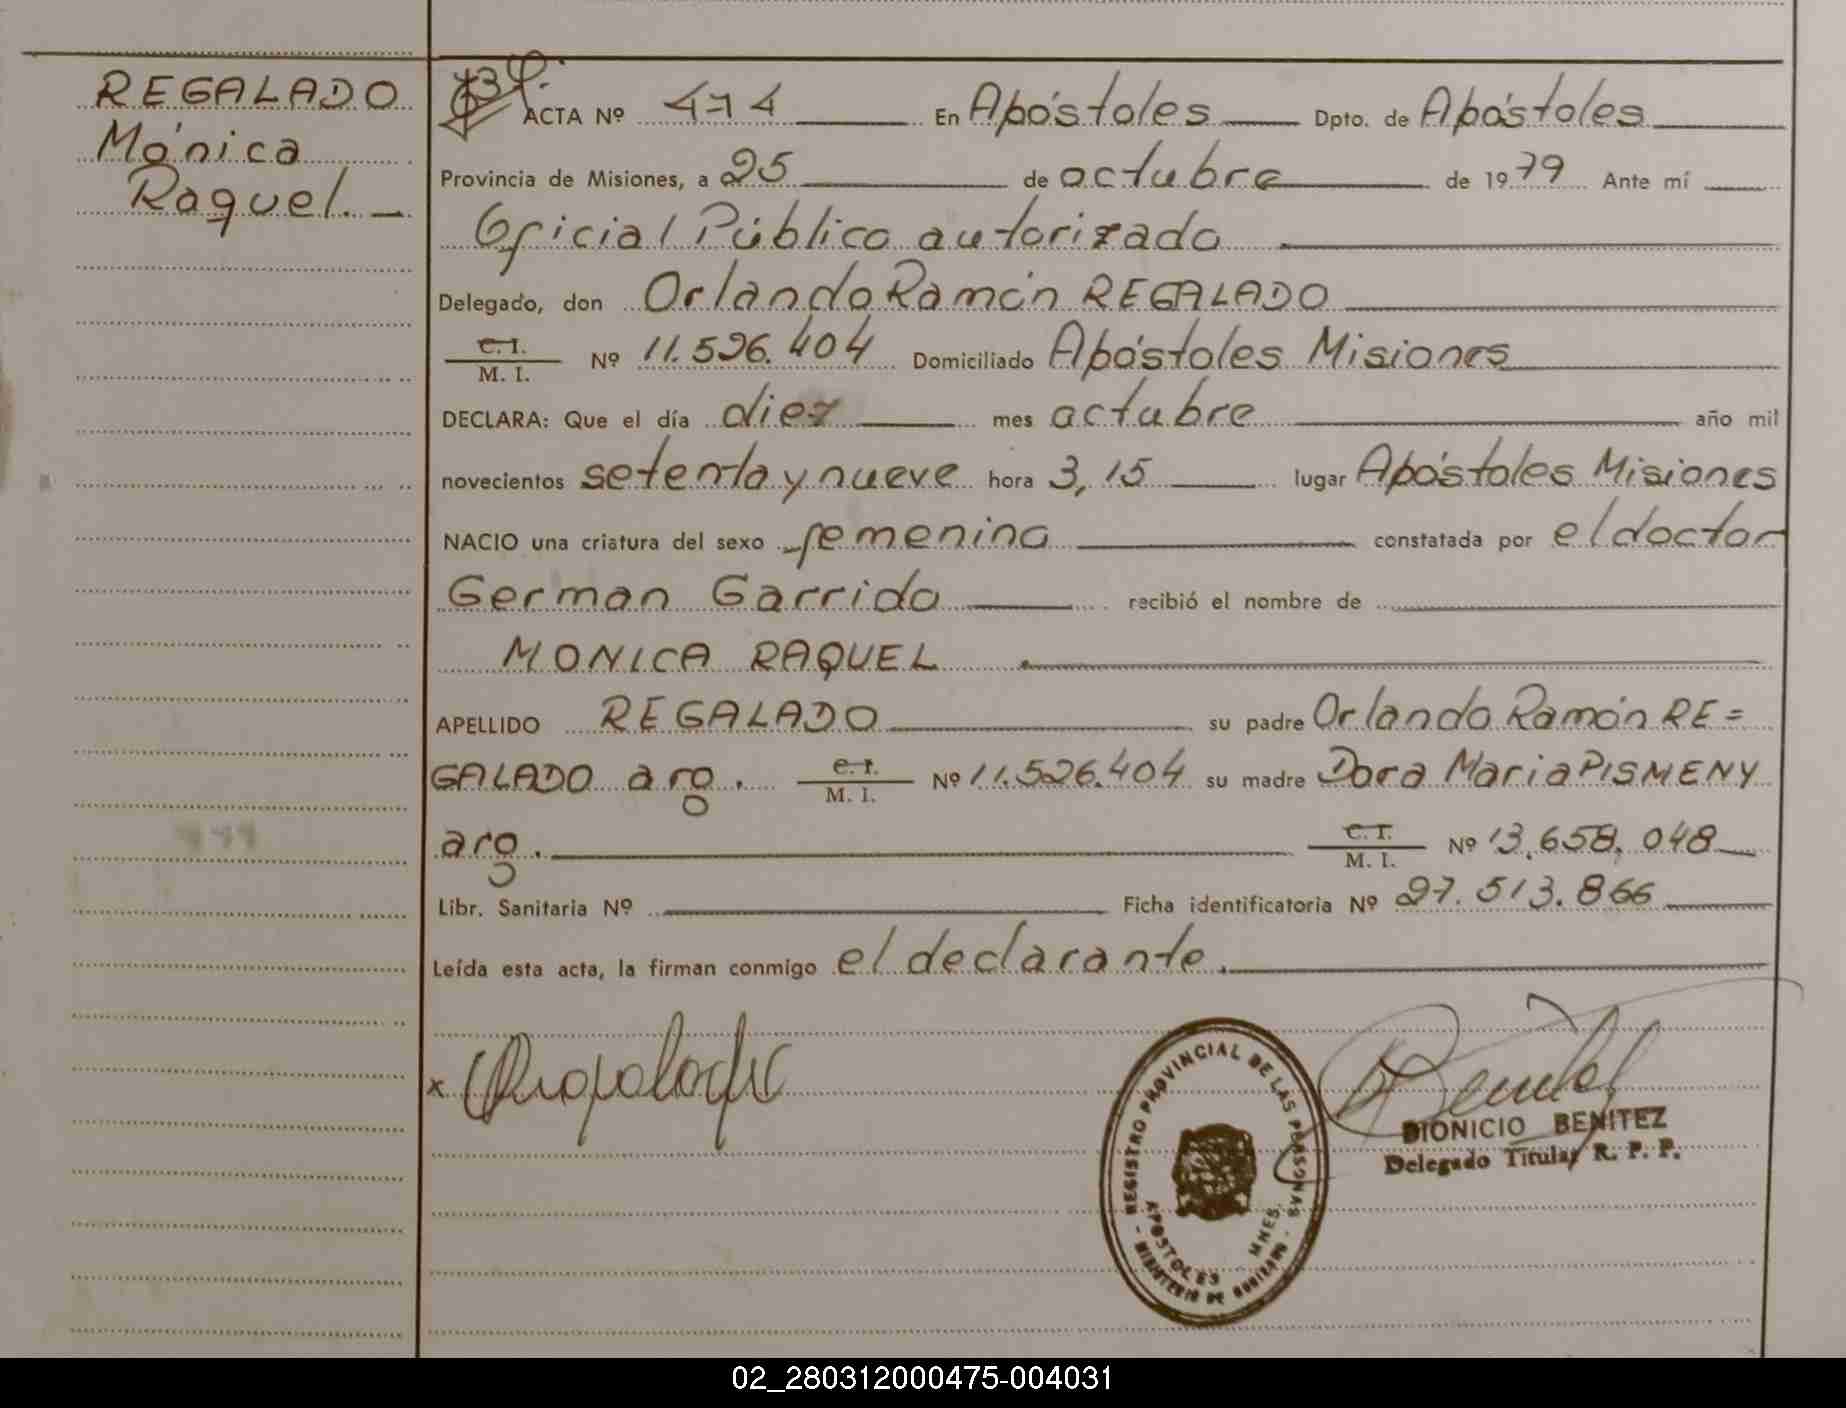 REGALADO
Mónica
Raquel. —
ACTA Nº 474 En Apóstoles Dpto. de Apóstoles
Provincia de Misiones, a 25 de octubre de 1979 Ante mí
Oficial Público autorizado
Delegado, don Orlando Ramón REGALADO
C. I.
M. I. Nº 11.526.404 Domiciliado Apóstoles Misiones
DECLARA: Que el día diez mes octubre año mil
novecientos setenta y nueve hora 3,15 lugar Apóstoles Misiones
NACIO una criatura del sexo femenino constatada por el doctor
German Garrido recibió el nombre de
MONICA RAQUEL
APELLIDO REGALADO su padre Orlando Ramón RE=
GALADO arg. C. I.
M. I. Nº 11.526.404 su madre Dora Maria PISMENY
arg. C. I.
M. I. Nº 13.658.048
Libr. Sanitaria Nº Ficha identificatoria Nº 27.513.866
Leída esta acta, la firman conmigo el declarante.
x
REGISTRO PROVINCIAL DE LAS PERSONAS
APOSTOLES MNES.
- MINISTERIO DE GOBIERNO -
DIONICIO BENITEZ
Delegado Titular R. P. P.
02_280312000475-004031